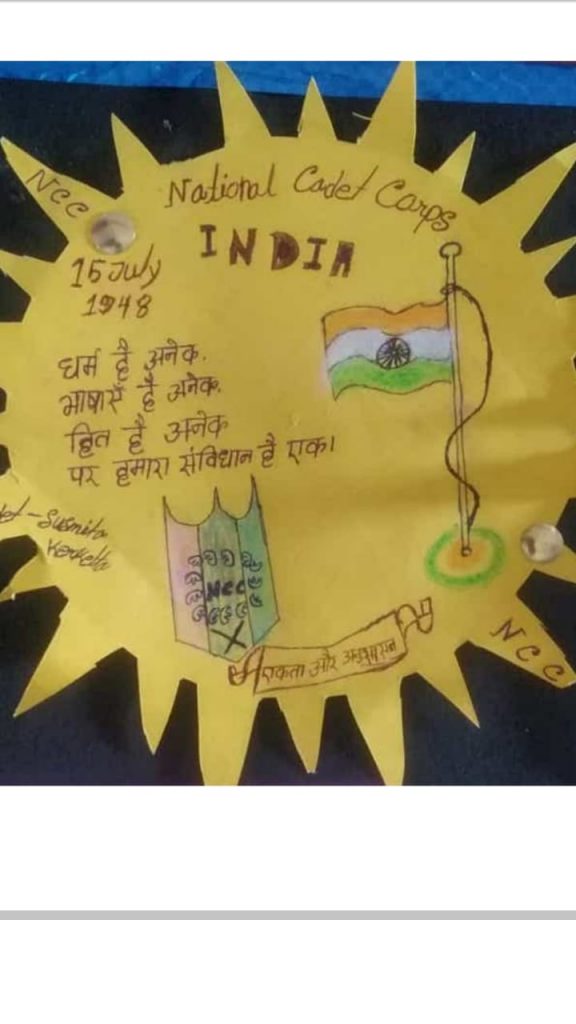 NCC
National Cadet Corps
INDIA
15 July
1948
धर्म है अनेक.
भाषाएँ है अनेक.
हित है अनेक
पर हमारा संविधान है एक।
Susmita
Kerketta
NCC
एकता और अनुशासन
NCC